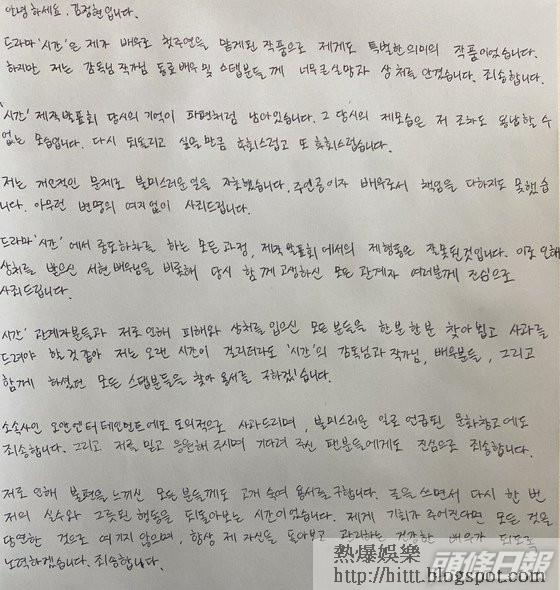 안녕하세요. 김정현입니다.
드라마 '시간'은 제가 배우로 첫주연을 맡게된 작품으로 제게도 특별한 의미의 작품이었습니다.
하지만 저는 감독님 작가님 동료배우 및 스텝분들께 너무도 실망과 상처를 안겼습니다. 죄송합니다.
'시간' 제작발표회 당시의 기억이 파편처럼 남아있습니다. 그 당시의 제모습은 저 조차도 용납할 수
없는 모습입니다. 다시 되돌리고 싶을 만큼 후회스럽고 또 후회스럽습니다.
저는 개인적인 문제로 불미스러운 일을 자초했습니다. 주인공이자 배우로서 책임을 다하지도 못했습
니다. 아무런 변명의 여지없이 사죄드립니다.
드라마 '시간'에서 중도하차를 하는 모든과정, 제작발표회에서의 제행동은 잘못된것입니다. 이로 인해
상처를 받으신 서현 배우님을 비롯해 당시 함께 고생하신 모든 관계자 여러분께 진심으로
사죄드립니다.
시간' 관계자분들과 저로인해 피해와 상처를 입으신 모든 분들을 한분 한분 찾아뵙고 사과를
드려야 할 것 같아 저는 오랜 시간이 걸리더라도 '시간'의 감독님과 작가님, 배우분들, 그리고
함께 하셨던 모든 스탭분들을 찾아 용서를 구하겠습니다.
소속사인 오앤엔터테인먼트에도 도의적으로 사과드리며, 불미스러운 일로 언급된 문화창고에도
죄송합니다. 그리고 저를 믿고 응원해 주시며 기다려 주신 팬분들에게도 진심으로 죄송합니다.
저로 인해 불편을 느끼신 모든 분들께도 고개 숙여 용서를 구합니다. 글을 쓰면서 다시 한 번
저의 실수와 그릇된 행동을 되돌아보는 시간이었습니다. 제게 기회가 주어진다면 모든 것을
당연한 것으로 여기지 않으며, 항상 제 자신을 돌아보고 관리하는 건강한 배우가 되도록
노력하겠습니다. 죄송합니다.
熱爆娛樂
頭條日報
http://hittt.blogspot.com/